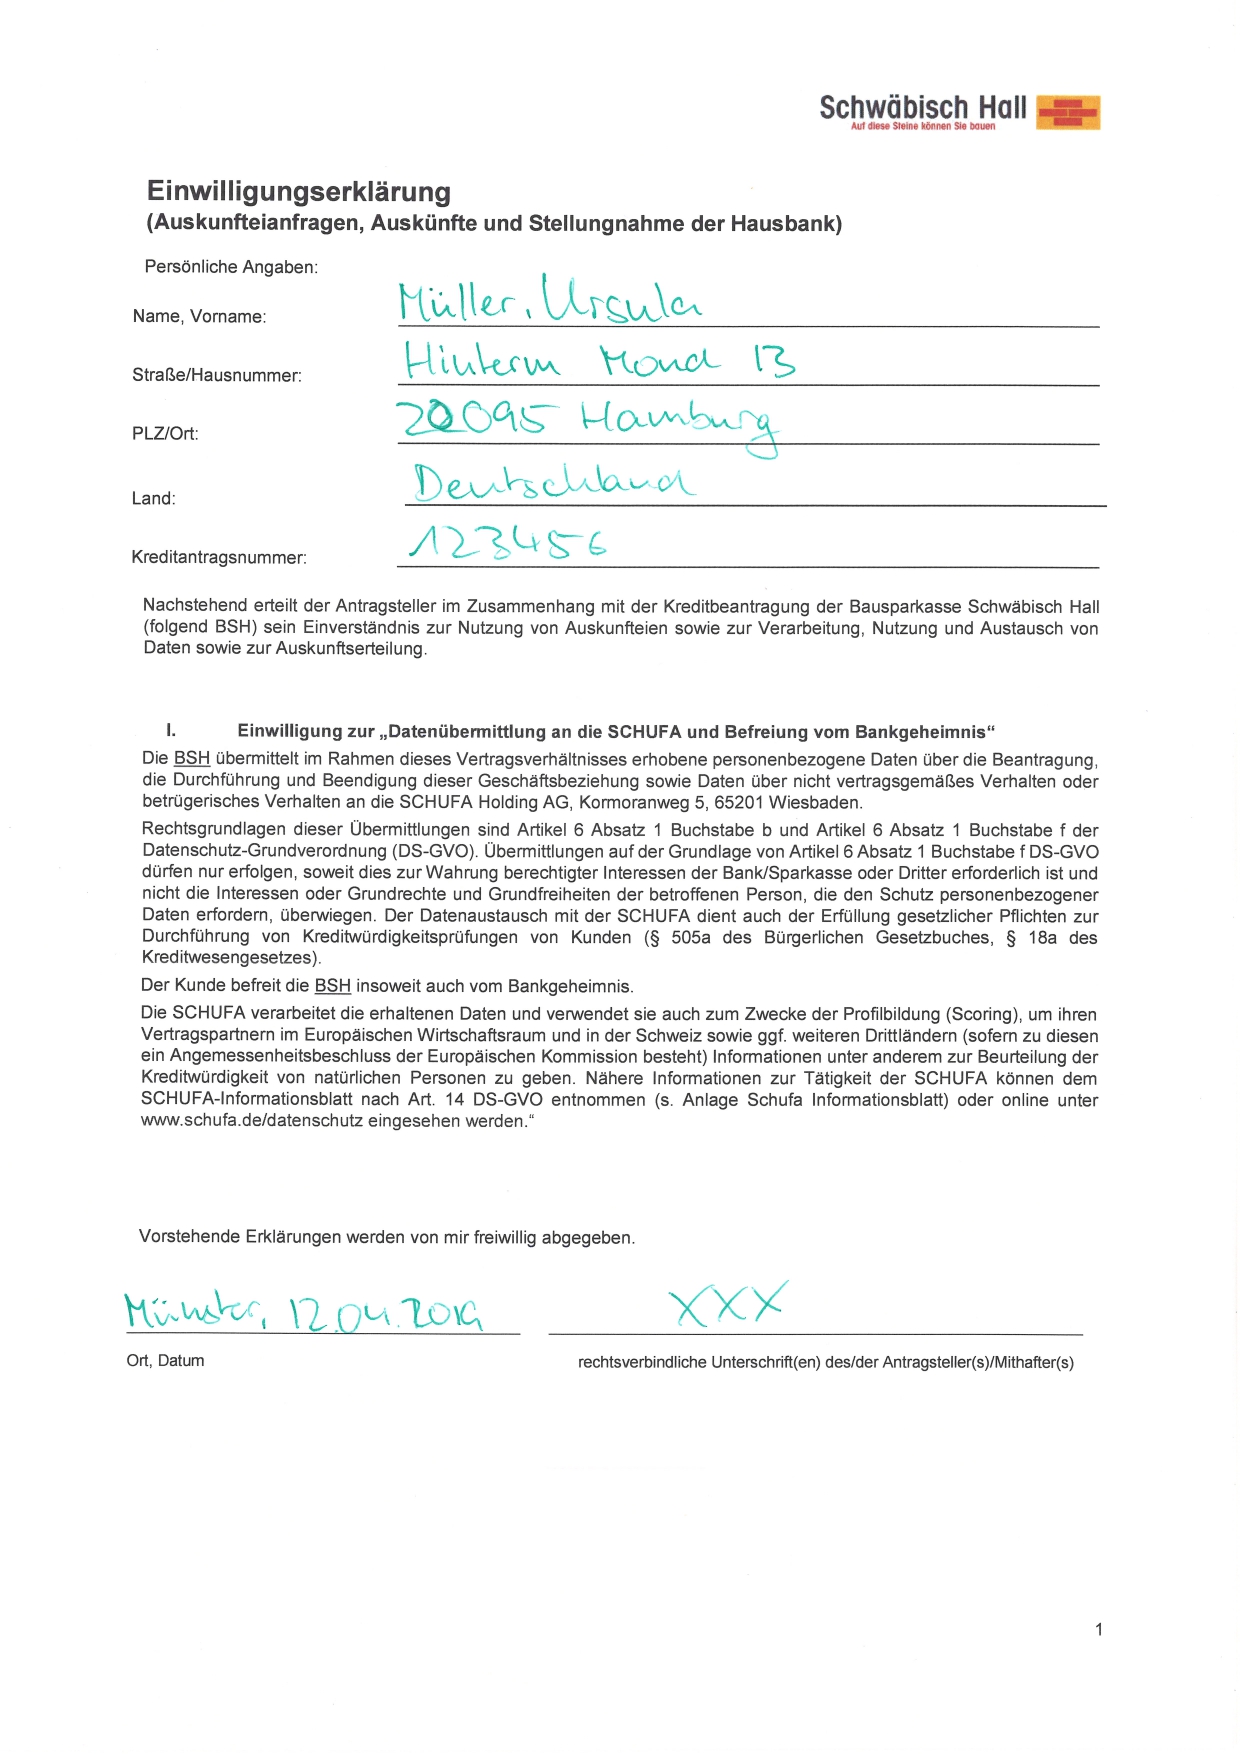 Schwäbisch Hall
Auf diese Steine können Sie bauen
Einwilligungserklärung
(Auskunfteianfragen, Auskünfte und Stellungnahme der Hausbank)
Persönliche Angaben:
Name, Vorname: Müller, Ursula
Straße/Hausnummer: Hinterm Mond 13
PLZ/Ort: 20095 Hamburg
Land: Deutschland
Kreditantragsnummer: 123456
Nachstehend erteilt der Antragsteller im Zusammenhang mit der Kreditbeantragung der Bausparkasse Schwäbisch Hall
(folgend BSH) sein Einverständnis zur Nutzung von Auskunfteien sowie zur Verarbeitung, Nutzung und Austausch von
Daten sowie zur Auskunftserteilung.
I. Einwilligung zur „Datenübermittlung an die SCHUFA und Befreiung vom Bankgeheimnis“
Die BSH übermittelt im Rahmen dieses Vertragsverhältnisses erhobene personenbezogene Daten über die Beantragung,
die Durchführung und Beendigung dieser Geschäftsbeziehung sowie Daten über nicht vertragsgemäßes Verhalten oder
betrügerisches Verhalten an die SCHUFA Holding AG, Kormoranweg 5, 65201 Wiesbaden.
Rechtsgrundlagen dieser Übermittlungen sind Artikel 6 Absatz 1 Buchstabe b und Artikel 6 Absatz 1 Buchstabe f der
Datenschutz-Grundverordnung (DS-GVO). Übermittlungen auf der Grundlage von Artikel 6 Absatz 1 Buchstabe f DS-GVO
dürfen nur erfolgen, soweit dies zur Wahrung berechtigter Interessen der Bank/Sparkasse oder Dritter erforderlich ist und
nicht die Interessen oder Grundrechte und Grundfreiheiten der betroffenen Person, die den Schutz personenbezogener
Daten erfordern, überwiegen. Der Datenaustausch mit der SCHUFA dient auch der Erfüllung gesetzlicher Pflichten zur
Durchführung von Kreditwürdigkeitsprüfungen von Kunden (§ 505a des Bürgerlichen Gesetzbuches, § 18a des
Kreditwesengesetzes).
Der Kunde befreit die BSH insoweit auch vom Bankgeheimnis.
Die SCHUFA verarbeitet die erhaltenen Daten und verwendet sie auch zum Zwecke der Profilbildung (Scoring), um ihren
Vertragspartnern im Europäischen Wirtschaftsraum und in der Schweiz sowie ggf. weiteren Drittländern (sofern zu diesen
ein Angemessenheitsbeschluss der Europäischen Kommission besteht) Informationen unter anderem zur Beurteilung der
Kreditwürdigkeit von natürlichen Personen zu geben. Nähere Informationen zur Tätigkeit der SCHUFA können dem
SCHUFA-Informationsblatt nach Art. 14 DS-GVO entnommen (s. Anlage Schufa Informationsblatt) oder online unter
www.schufa.de/datenschutz eingesehen werden.“
Vorstehende Erklärungen werden von mir freiwillig abgegeben.
Münster, 12.04.2019 XXX
Ort, Datum rechtsverbindliche Unterschrift(en) des/der Antragsteller(s)/Mithafter(s)
1